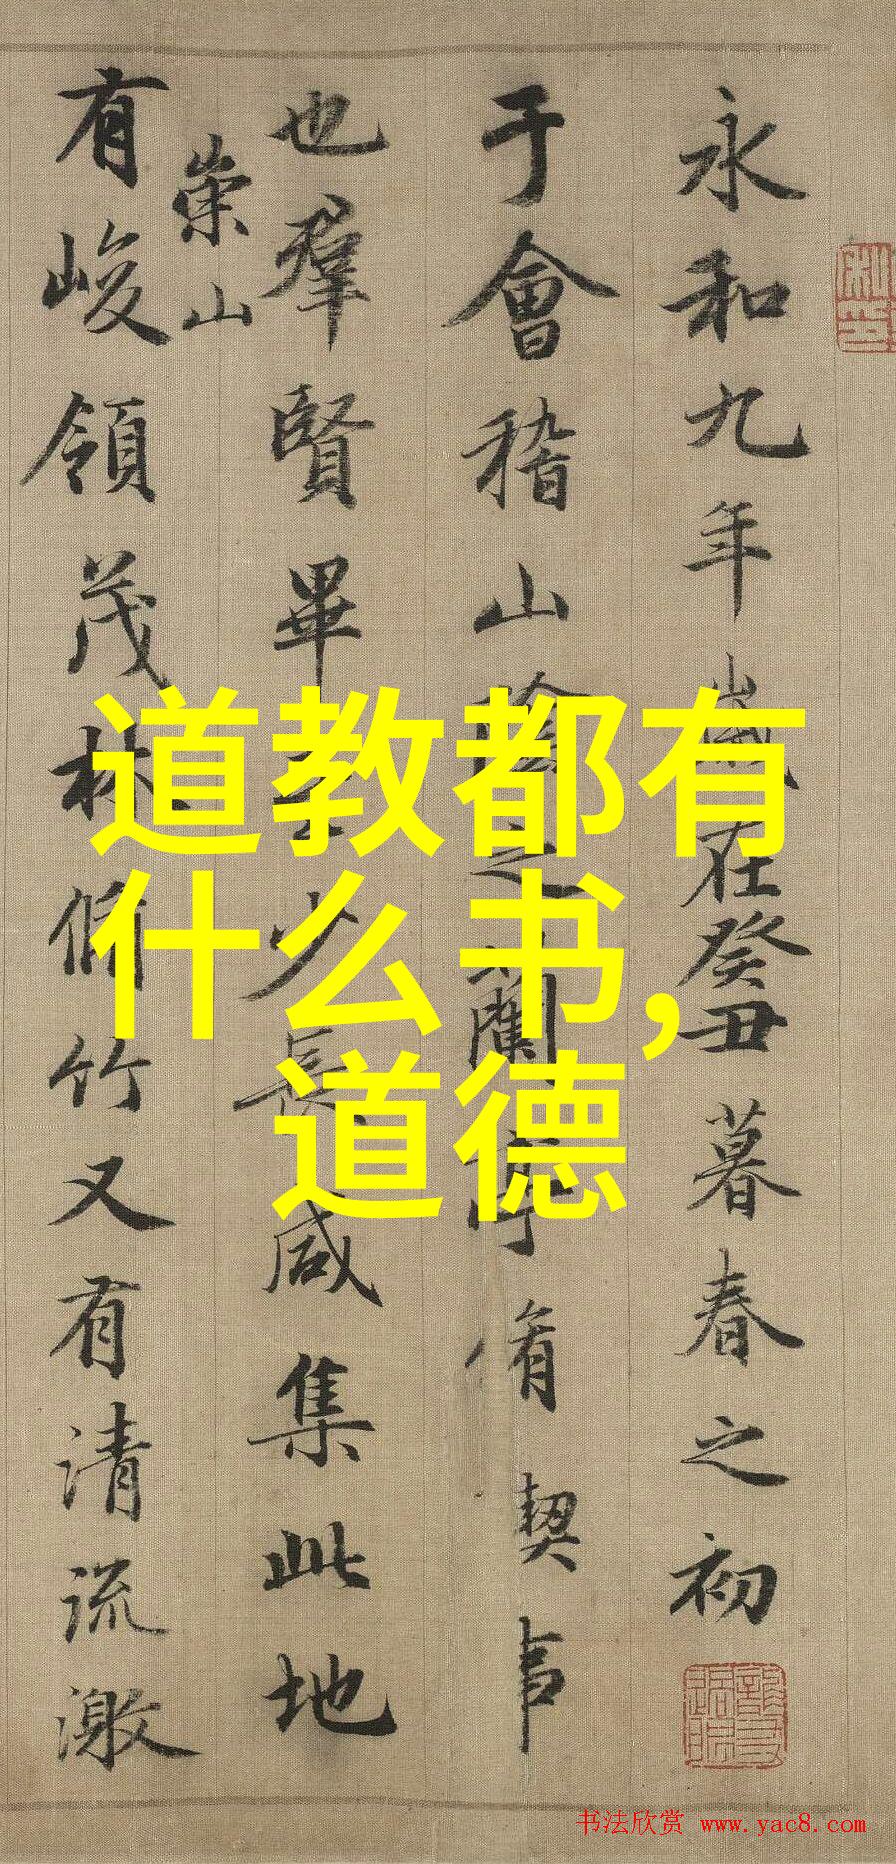 永和九年歲在癸丑暮春之初
于會稽山陰之蘭亭脩禊事
也羣賢畢至少長咸集此地
有崇山峻領茂林脩竹又有清流激
道教都有
什么书,
道德
书法欣赏 www.yac8.com